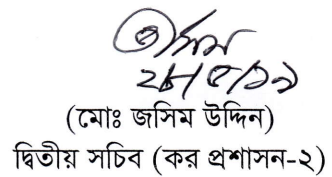 জসিম
২৮/৫/১৯
(মোঃ জসিম উদ্দিন)
দ্বিতীয় সচিব (কর প্রশাসন-২)